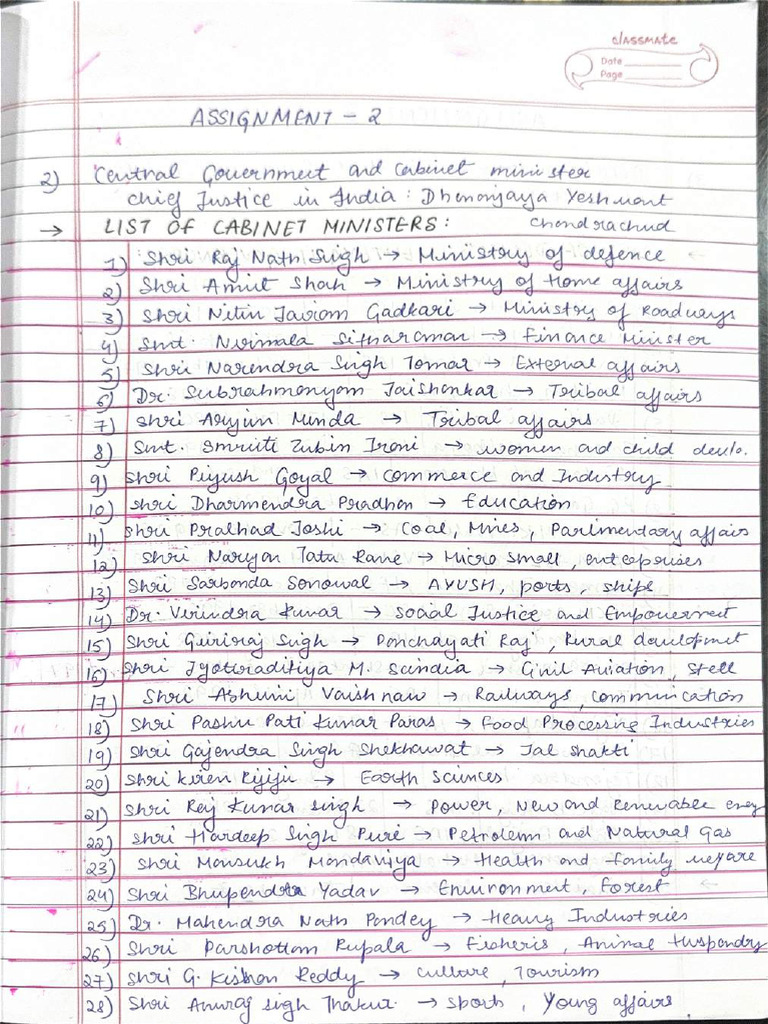 classmate
Date
Page
ASSIGNMENT - 2
2) Central Government and cabinet minister
chief Justice in India : Dhananjaya Yeshwant
Chandrachud
→ LIST OF CABINET MINISTERS :
1) Shri Raj Nath Singh → Ministry of defence
2) Shri Amit Shah → Ministry of Home affairs
3) Shri Nitin Jairam Gadkari → Ministry of Roadways
4) Smt. Nirmala Sitharaman → Finance Minister
5) Shri Narendra Singh Tomar → External affairs
6) Dr. Subrahmanyam Jaishankar → Tribal affairs
7) Shri Arjun Munda → Tribal affairs
8) Smt. Smriti Zubin Irani → women and child devlo.
9) Shri Piyush Goyal → commerce and Industry
10) Shri Dharmendra Pradhan → Education
11) Shri Pralhad Joshi → Coal, Mines, Parlimentary affairs
12) Shri Naryan Tatu Rane → Micro small, enterprises
13) Shri Sarbanda Sonowal → AYUSH, ports, ships
14) Dr. Virendra Kumar → social Justice and Empowerment
15) Shri Giriraj Singh → Panchayati Raj, Rural development
16) Shri Jyotiraditiya M. Scindia → Civil Aviation, Steel
17) Shri Ashwini Vaishnaw → Railways, communication
18) Shri Pashu Pati Kumar Paras → Food Processing Industries
19) Shri Gajendra Singh Shekhawat → Jal shakti
20) Shri Kiren Rijiju → Earth Sciences
21) Shri Raj Kumar Singh → Power, New and Renewable energy
22) Shri Hardeep Singh Puri → Petroleum and Natural Gas
23) Shri Mansukh Mandaviya → Health and family welfare
24) Shri Bhupendra Yadav → Environment, Forest
25) Dr. Mahendra Nath Pandey → Heavy Industries
26) Shri Parshottam Rupala → Fisheris, Animal Huspandry
27) Shri G. Kishan Reddy → Culture, Tourism
28) Shri Anurag Sigh Thakur → sports, Young affairs.